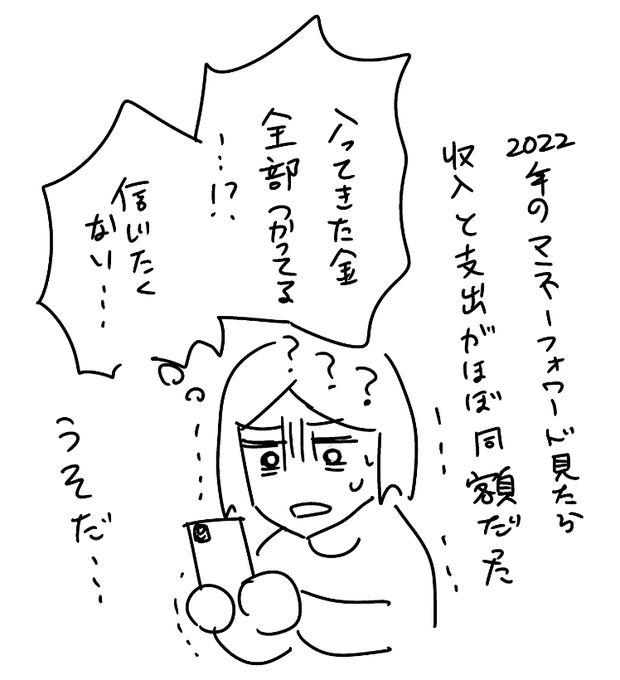 2022
年のマネーフォワード見たら
収入と支出がほぼ同額だった
……
入ってきた金
全部つかってる
…!?
信じたく
ない…
? ? ?
うそだ…